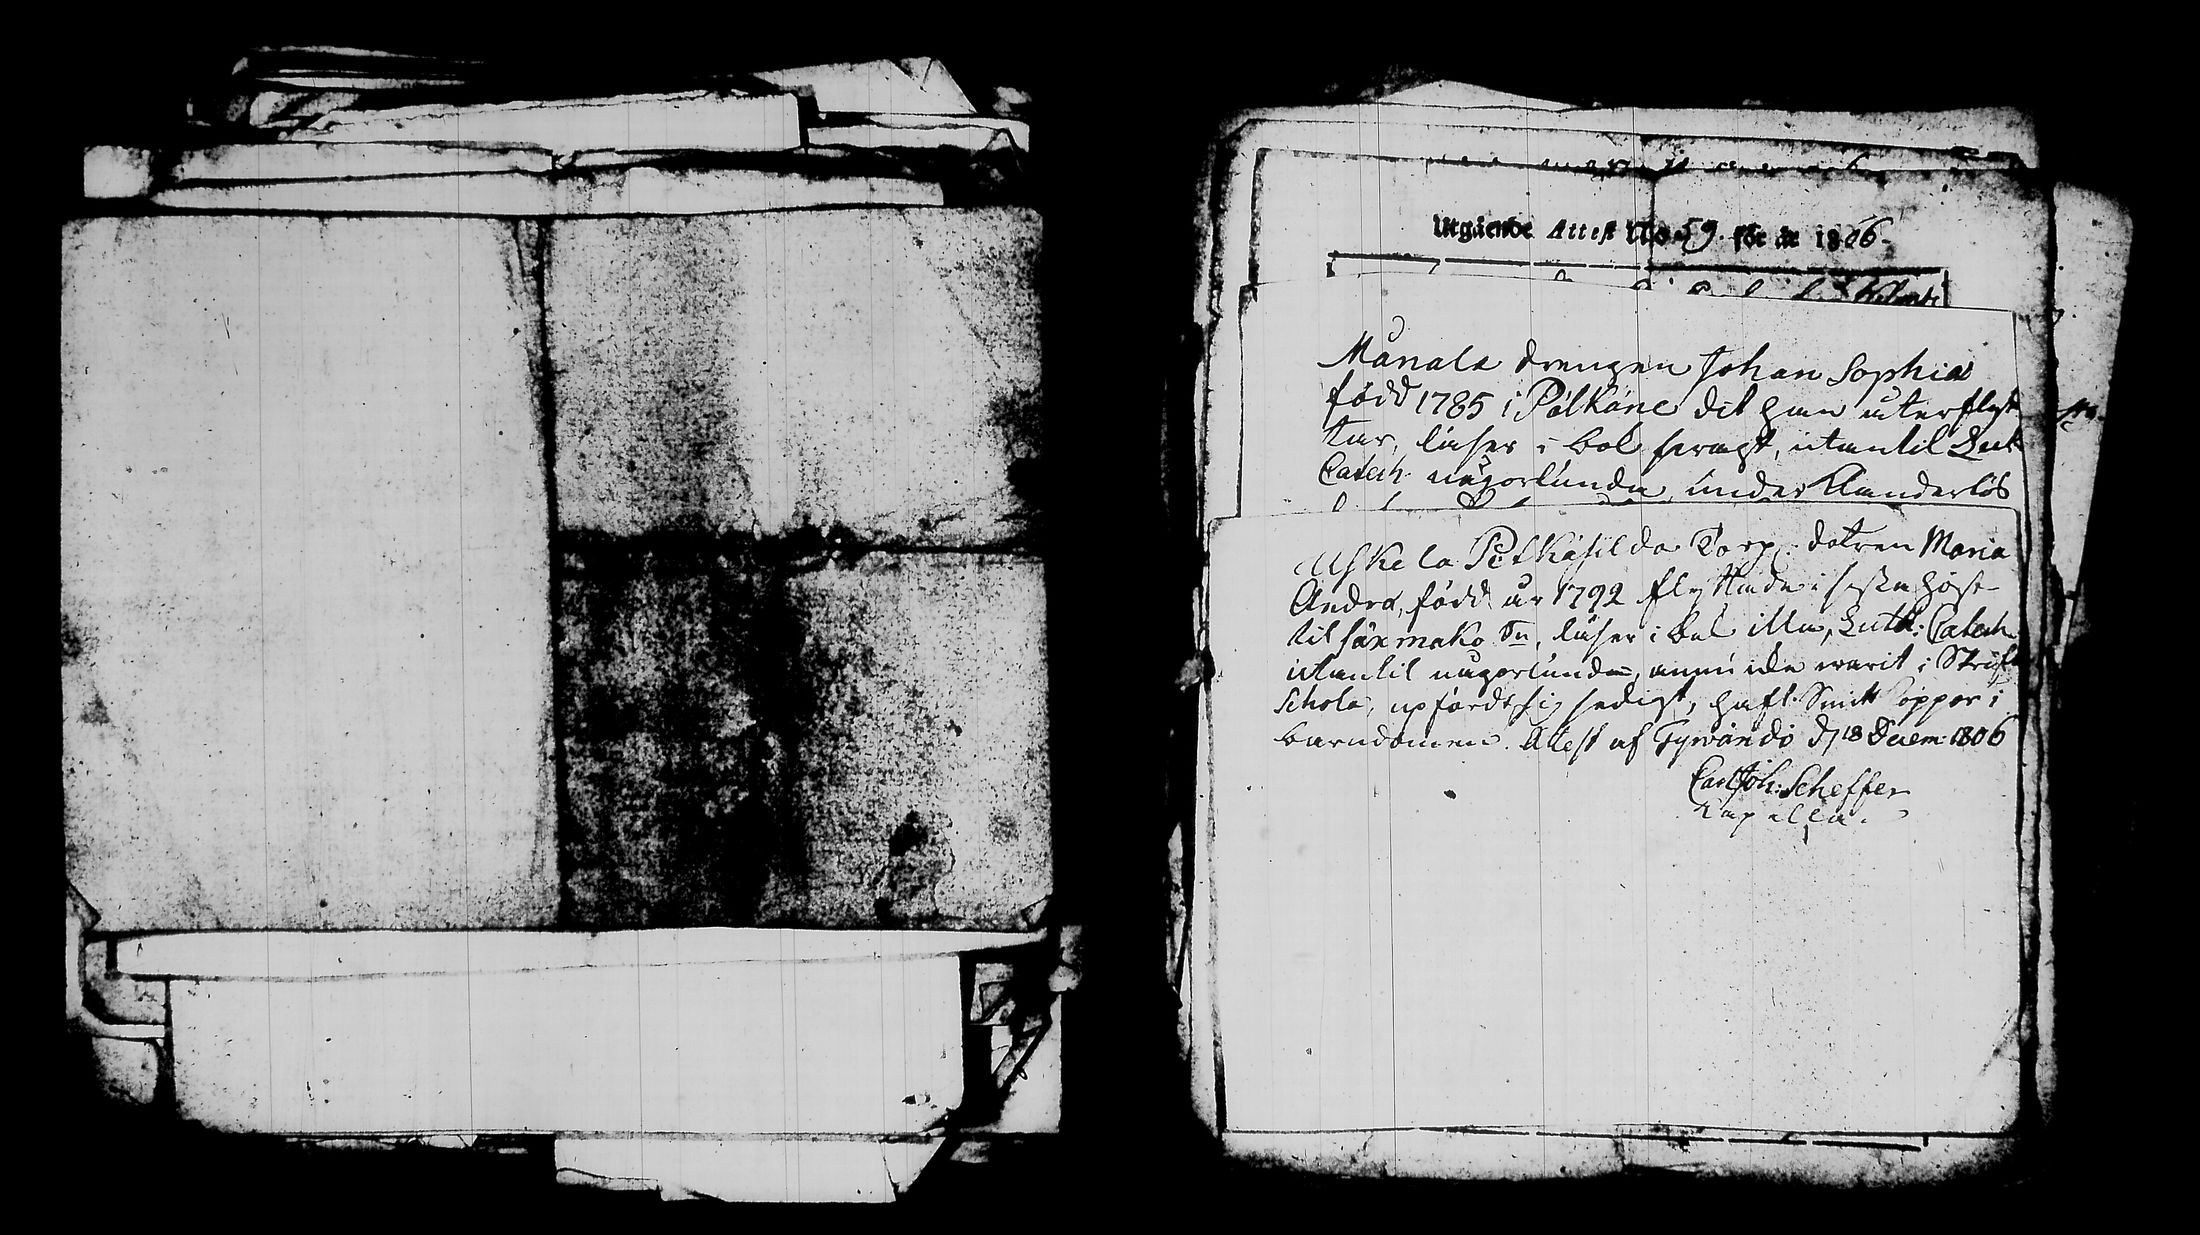 Utgående Attest No 59. för år 1806.
Månala drengen Johan Sophia
född 1785 i Pálkáne dit han åter flyt
tar, läser i bok svagt, utantil Luth
Catech. någorlunda, under
Uskela Petkäsilda Torp. dotren Maria
Andrɑ, född år 1792 flyttade i sista höst
til Säxmäko Sn, läser i bok illa, Luth: Catech.
utantil någorlunda, ännu icke warit i Skrift
Schola, upfördt sig sedigt, haft Smittkoppor i
barndomen. Attest af Tyrvändö d 18 Decem: 1806
Carl Joh: Scheffer
Capellan.